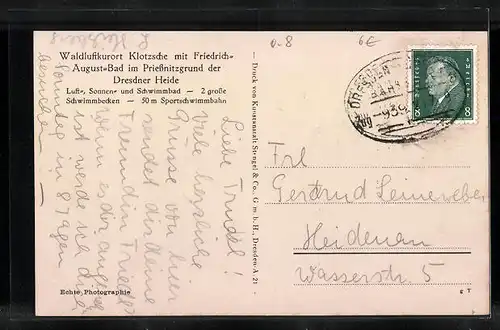 Waldluftkurort Klotzsche mit Friedrich-
August-Bad im Prießnitzgrund der
Dresdner Heide
Luft-, Sonnen- und Schwimmbad — 2 große
Schwimmbecken — 50 m Sportschwimmbahn
Liebe Trudel!
Viele herzliche
Grüsse von hier
sendet dir deine
Freundin
wenn es dir angenehm
ist werde ich dich
Sonntag in 8 Tagen
besuchen
Echte Photographie
Druck von Kunstanstalt Stengel & Co., G. m. b. H., Dresden-A. 21
0.-8
6€
DRESDEN
BAHN
939
8 8
Frl
Gertrud Leineweber
Heidenau
Wasserstr. 5